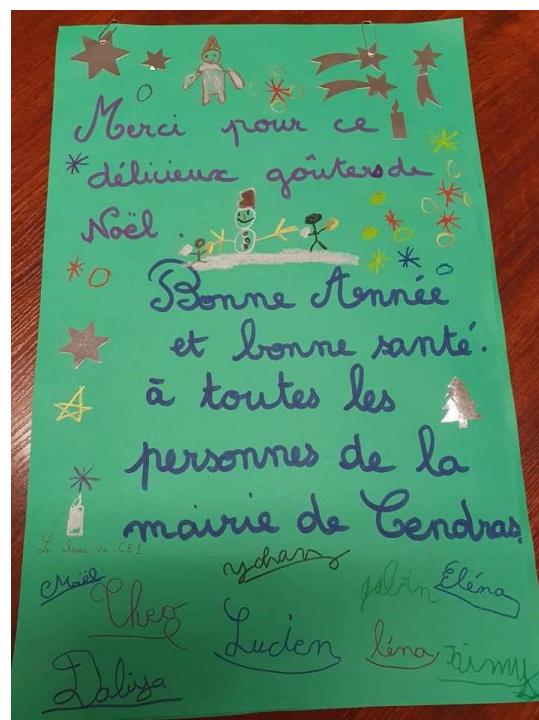 Merci pour ce
délicieux goûters de
Noël.
Bonne Année
et bonne santé.
à toutes les
personnes de la
mairie de Cendras
La classe de CE1
Maël
Yohan
Eléna
Theo
Lucien
léna
Jaimy
Daliya